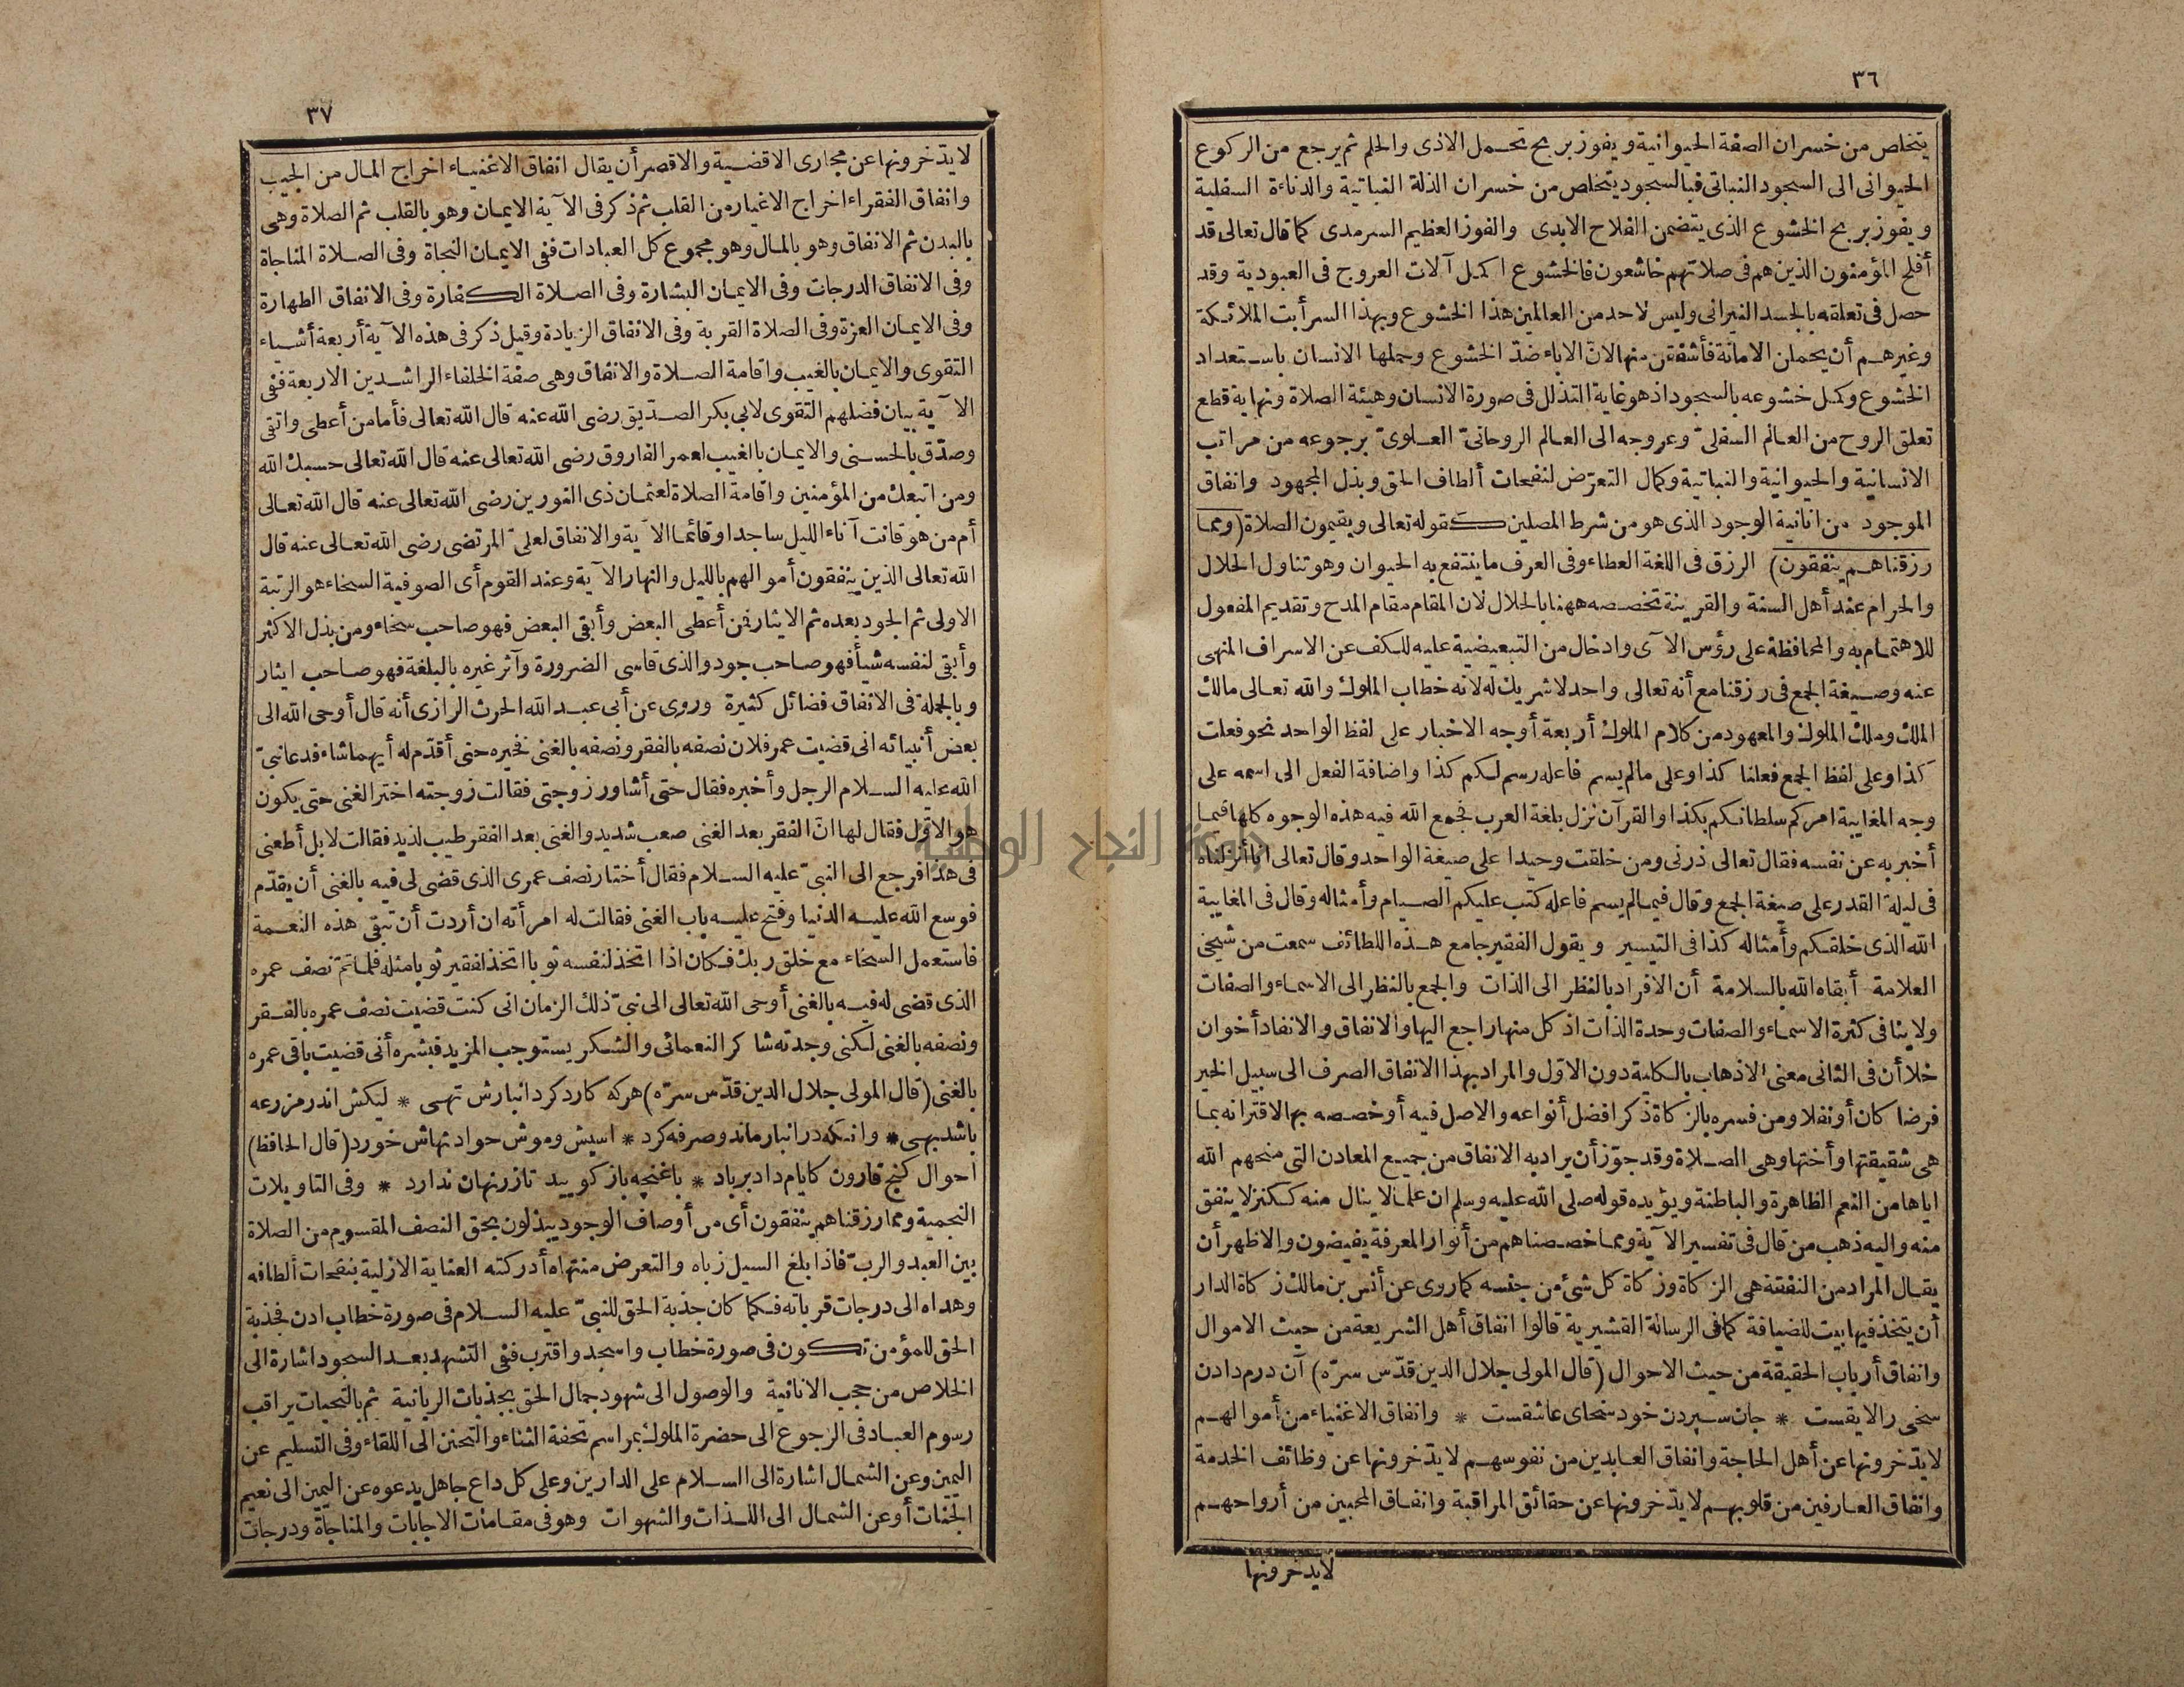 ٣٦
يتخلص من خسران الصفة الحيوانية ويفوز بربح تحمل الاذى والحلم ثم يرجع من الركوع
الحيوانى الى السجود النباتى فبالسجود يتخلص من خسران الذلة النباتية والدناءة السفلية
ويفوز بربح الخشوع الذى يتضمن الفلاح الابدى والفوز العظيم السرمدى كما قال تعالى قد
أفلح المؤمنون الذين هم فى صلاتهم خاشعون فالخشوع اكمل آلات العروج فى العبودية وقد
حصل فى تعلقه بالجسد النيرانى وليس لاحد من العالمين هذا الخشوع وبهذا السر أبت الملائكة
وغيرهم أن يحملن الامانة فأشفقن منها لانّ الاباء ضدّ الخشوع وحملها الانسان باستعداد
الخشوع وكمل خشوعه بالسجود اذ هو غاية التذلل فى صورة الانسان وهيئة الصلاة ونهاية قطع
تعلق الروح من العالم السفلىّ وعروجه الى العالم الروحانىّ العلوىّ برجوعه من مراتب
الانسانية والحيوانية والنباتية وكمال التعرّض لنفحات ألطاف الحق وبذل المجهود وانفاق
الموجود من انانية الوجود الذى هو من شرط المصلين كقوله تعالى ويقيمون الصلاة (ومما
رزقناهم ينفقون) الرزق فى اللغة العطاء وفى العرف ما ينتفع به الحيوان وهو تناول الحلال
والحرام عند أهل السنة والقرينة تخصصه ههنا بالحلال لان المقام مقام المدح وتقديم المفعول
للاهتمام به والمحافظة على رؤس الآى وادخال من التبعيضية عليه للكف عن الاسراف المنهى
عنه وصيغة الجمع فى رزقنا مع أنه تعالى واحد لا شريك له لانه خطاب الملوك والله تعالى مالك
الملك وملك الملوك والمعهود من كلام الملوك أربعة أوجه الاخبار على لفظ الواحد نحو فعلت
كذا وعلى لفظ الجمع فعلنا كذا وعلى ما لم يسم فاعله رسم لكم كذا واضافة الفعل الى اسمه على
وجه المغايبة امركم سلطانكم بكذا والقرآن نزل بلغة العرب فجمع الله فيه هذه الوجوه كلها فيما
أخبر به عن نفسه فقال تعالى ذرنى ومن خلقت وحيدا على صيغة الواحد وقال تعالى انا أنزلناه
فى ليلة القدر على صيغة الجمع وقال فيما لم يسم فاعله كتب عليكم الصيام وأمثاله وقال فى المغايبة
الله الذى خلقكم وأمثاله كذا فى التيسير ويقول الفقير جامع هذه اللطائف سمعت من شيخى
العلامة أبقاه الله بالسلامة أن الافراد بالنظر الى الذات والجمع بالنظر الى الاسماء والصفات
ولا ينافى كثرة الاسماء والصفات وحدة الذات اذ كل منها راجع اليها والانفاق والانفاد أخوان
خلا أن فى الثانى معنى الاذهاب بالكلية دون الاوّل والمراد بهذا الانفاق الصرف الى سبيل الخير
فرضا كان أو نفلا ومن فسره بالزكاة ذكر افضل أنواعه والاصل فيه أو خصصه بها لاقترانه بما
هى شقيقتها وأختها وهى الصلاة وقد جوّز أن يراد به الانفاق من جميع المعادن التى منحهم الله
اياها من النعم الظاهرة والباطنة ويؤيده قوله صلى الله عليه وسلم ان علما لا ينال منه ككنز لا ينفق
منه واليه ذهب من قال فى تفسير الآية ومما خصصناهم من أنوار المعرفة يفيضون والاظهر أن
يقال المراد من النفقة هى الزكاة وزكاة كل شئ من جنسه كما روى عن أنس بن مالك زكاة الدار
أن يتخذ فيها بيت للضيافة كما فى الرسالة القشيرية قالوا انفاق أهل الشريعة من حيث الاموال
وانفاق أرباب الحقيقة من حيث الاحوال (قال المولى جلال الدين قدّس سرّه) آن درم دادن
سخى را لايقست * جان سپردن خود سخاى عاشقست * وانفاق الاغنياء من أموالهم
لا يدّخرونها عن أهل الحاجة وانفاق العابدين من نفوسهم لا يدّخرونها عن وظائف الخدمة
وانفاق العارفين من قلوبهم لا يدّخرونها عن حقائق المراقبة وانفاق المحبين من أرواحهم
لا يدخرونها
٣٧
لا يدّخرونها عن مجارى الاقضية والاقصر أن يقال انفاق الاغنياء اخراج المال من الجيب
وانفاق الفقراء اخراج الاغيار من القلب ثم ذكر فى الآية الايمان وهو بالقلب ثم الصلاة وهى
بالبدن ثم الانفاق وهو بالمال وهو مجموع كل العبادات ففى الايمان النجاة وفى الصلاة المناجاة
وفى الانفاق الدرجات وفى الايمان البشارة وفى الصلاة الكفارة وفى الانفاق الطهارة
وفى الايمان العزة وفى الصلاة القربة وفى الانفاق الزيادة وقيل ذكر فى هذه الآية أربعة أشياء
التقوى والايمان بالغيب واقامة الصلاة والانفاق وهى صفة الخلفاء الراشدين الاربعة ففى
الآية بيان فضلهم التقوى لابى بكر الصدّيق رضى الله عنه قال الله تعالى فأما من أعطى واتقى
وصدّق بالحسنى والايمان بالغيب لعمر الفاروق رضى الله تعالى عنه قال الله تعالى حسبك الله
ومن اتبعك من المؤمنين واقامة الصلاة لعثمان ذى النورين رضى الله تعالى عنه قال الله تعالى
أم من هو قانت آناء الليل ساجدا وقائما الآية والانفاق لعلىّ المرتضى رضى الله تعالى عنه قال
الله تعالى الذين ينفقون أموالهم بالليل والنهار الآية وعند القوم أى الصوفية السخاء هو الرتبة
الاولى ثم الجود بعده ثم الايثار فمن أعطى البعض وأبقى البعض فهو صاحب سخاء ومن بذل الاكثر
وأبقى لنفسه شيأ فهو صاحب جود والذى قاسى الضرورة وآثر غيره بالبلغة فهو صاحب ايثار
وبالجملة فى الانفاق فضائل كثيرة وروى عن أبى عبد الله الحرث الرازى أنه قال أوحى الله الى
بعض أنبيائه انى قضيت عمر فلان نصفه بالفقر ونصفه بالغنى فخيره حتى أقدّم له أيهما شاء فدعا نبىّ
الله عليه السلام الرجل وأخبره فقال حتى أشاور زوجتى فقالت زوجته اختر الغنى حتى يكون
هو الاوّل فقال لها انّ الفقر بعد الغنى صعب شديد والغنى بعد الفقر طيب لذيذ فقالت لا بل أطعنى
فى هذا فرجع الى النبىّ عليه السلام فقال أختار نصف عمرى الذى قضى لى فيه بالغنى أن يقدّم
فوسع الله عليه الدنيا وفتح عليه باب الغنى فقالت له امرأته ان أردت أن تبقى هذه النعمة
فاستعمل السخاء مع خلق ربك فكان اذا اتخذ لنفسه ثوبا اتخذ لفقير ثوبا مثله فلما تمّ نصف عمره
الذى قضى له فيه بالغنى أوحى الله تعالى الى نبىّ ذلك الزمان انى كنت قضيت نصف عمره بالفقر
ونصفه بالغنى لكنى وجدته شاكرا لنعمائى والشكر يستوجب المزيد فبشره أنى قضيت باقى عمره
بالغنى (قال المولى جلال الدين قدّس سرّه) هركه كارد كردد انبارش تهى * ليكش اندر مزرعه
باشد بهى * وانكه در انبار ماند وصرفه كرد * اسپش وموش حوادثهاش خورد (قال الحافظ)
احوال كنج قارون كايام داد برباد * با غنچه باز كوييد تا زر نهان ندارد * وفى التاويلات
النجمية ومما رزقناهم ينفقون أى من أوصاف الوجود يبذلون بحق النصف المقسوم من الصلاة
بين العبد والرب فاذا بلغ السيل زباه والتعرض منتهاه أدركته العناية الازلية بنفحات ألطافه
وهداه الى درجات قرباته فكما كان جذبة الحق للنبىّ عليه السلام فى صورة خطاب ادن فجذبة
الحق للمؤمن تكون فى صورة خطاب واسجد واقترب ففى التشهد بعد السجود اشارة الى
الخلاص من حجب الانانية والوصول الى شهود جمال الحق بجذبات الربانية ثم بالتحيات يراقب
رسوم العباد فى الرجوع الى حضرة الملوك بمراسم تحفة الثناء والتحنن الى اللقاء وفى التسليم عن
اليمين وعن الشمال اشارة الى السلام على الدارين وعلى كل داع جاهل يدعوه عن اليمين الى نعيم
الجنات أو عن الشمال الى اللذات والشهوات وهو فى مقامات الاجابات والمناجاة ودرجات
جامعة النجاح الوطنية